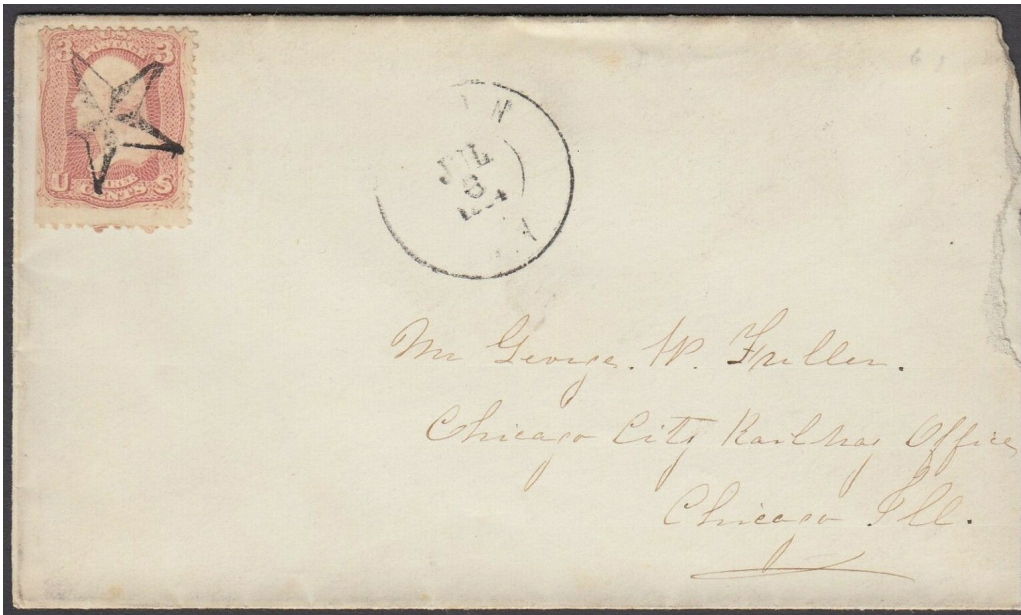 3 3
U S
JUL
6
Mr George. W. Fuller.
Chicago City Railway Office
Chicago Ill.